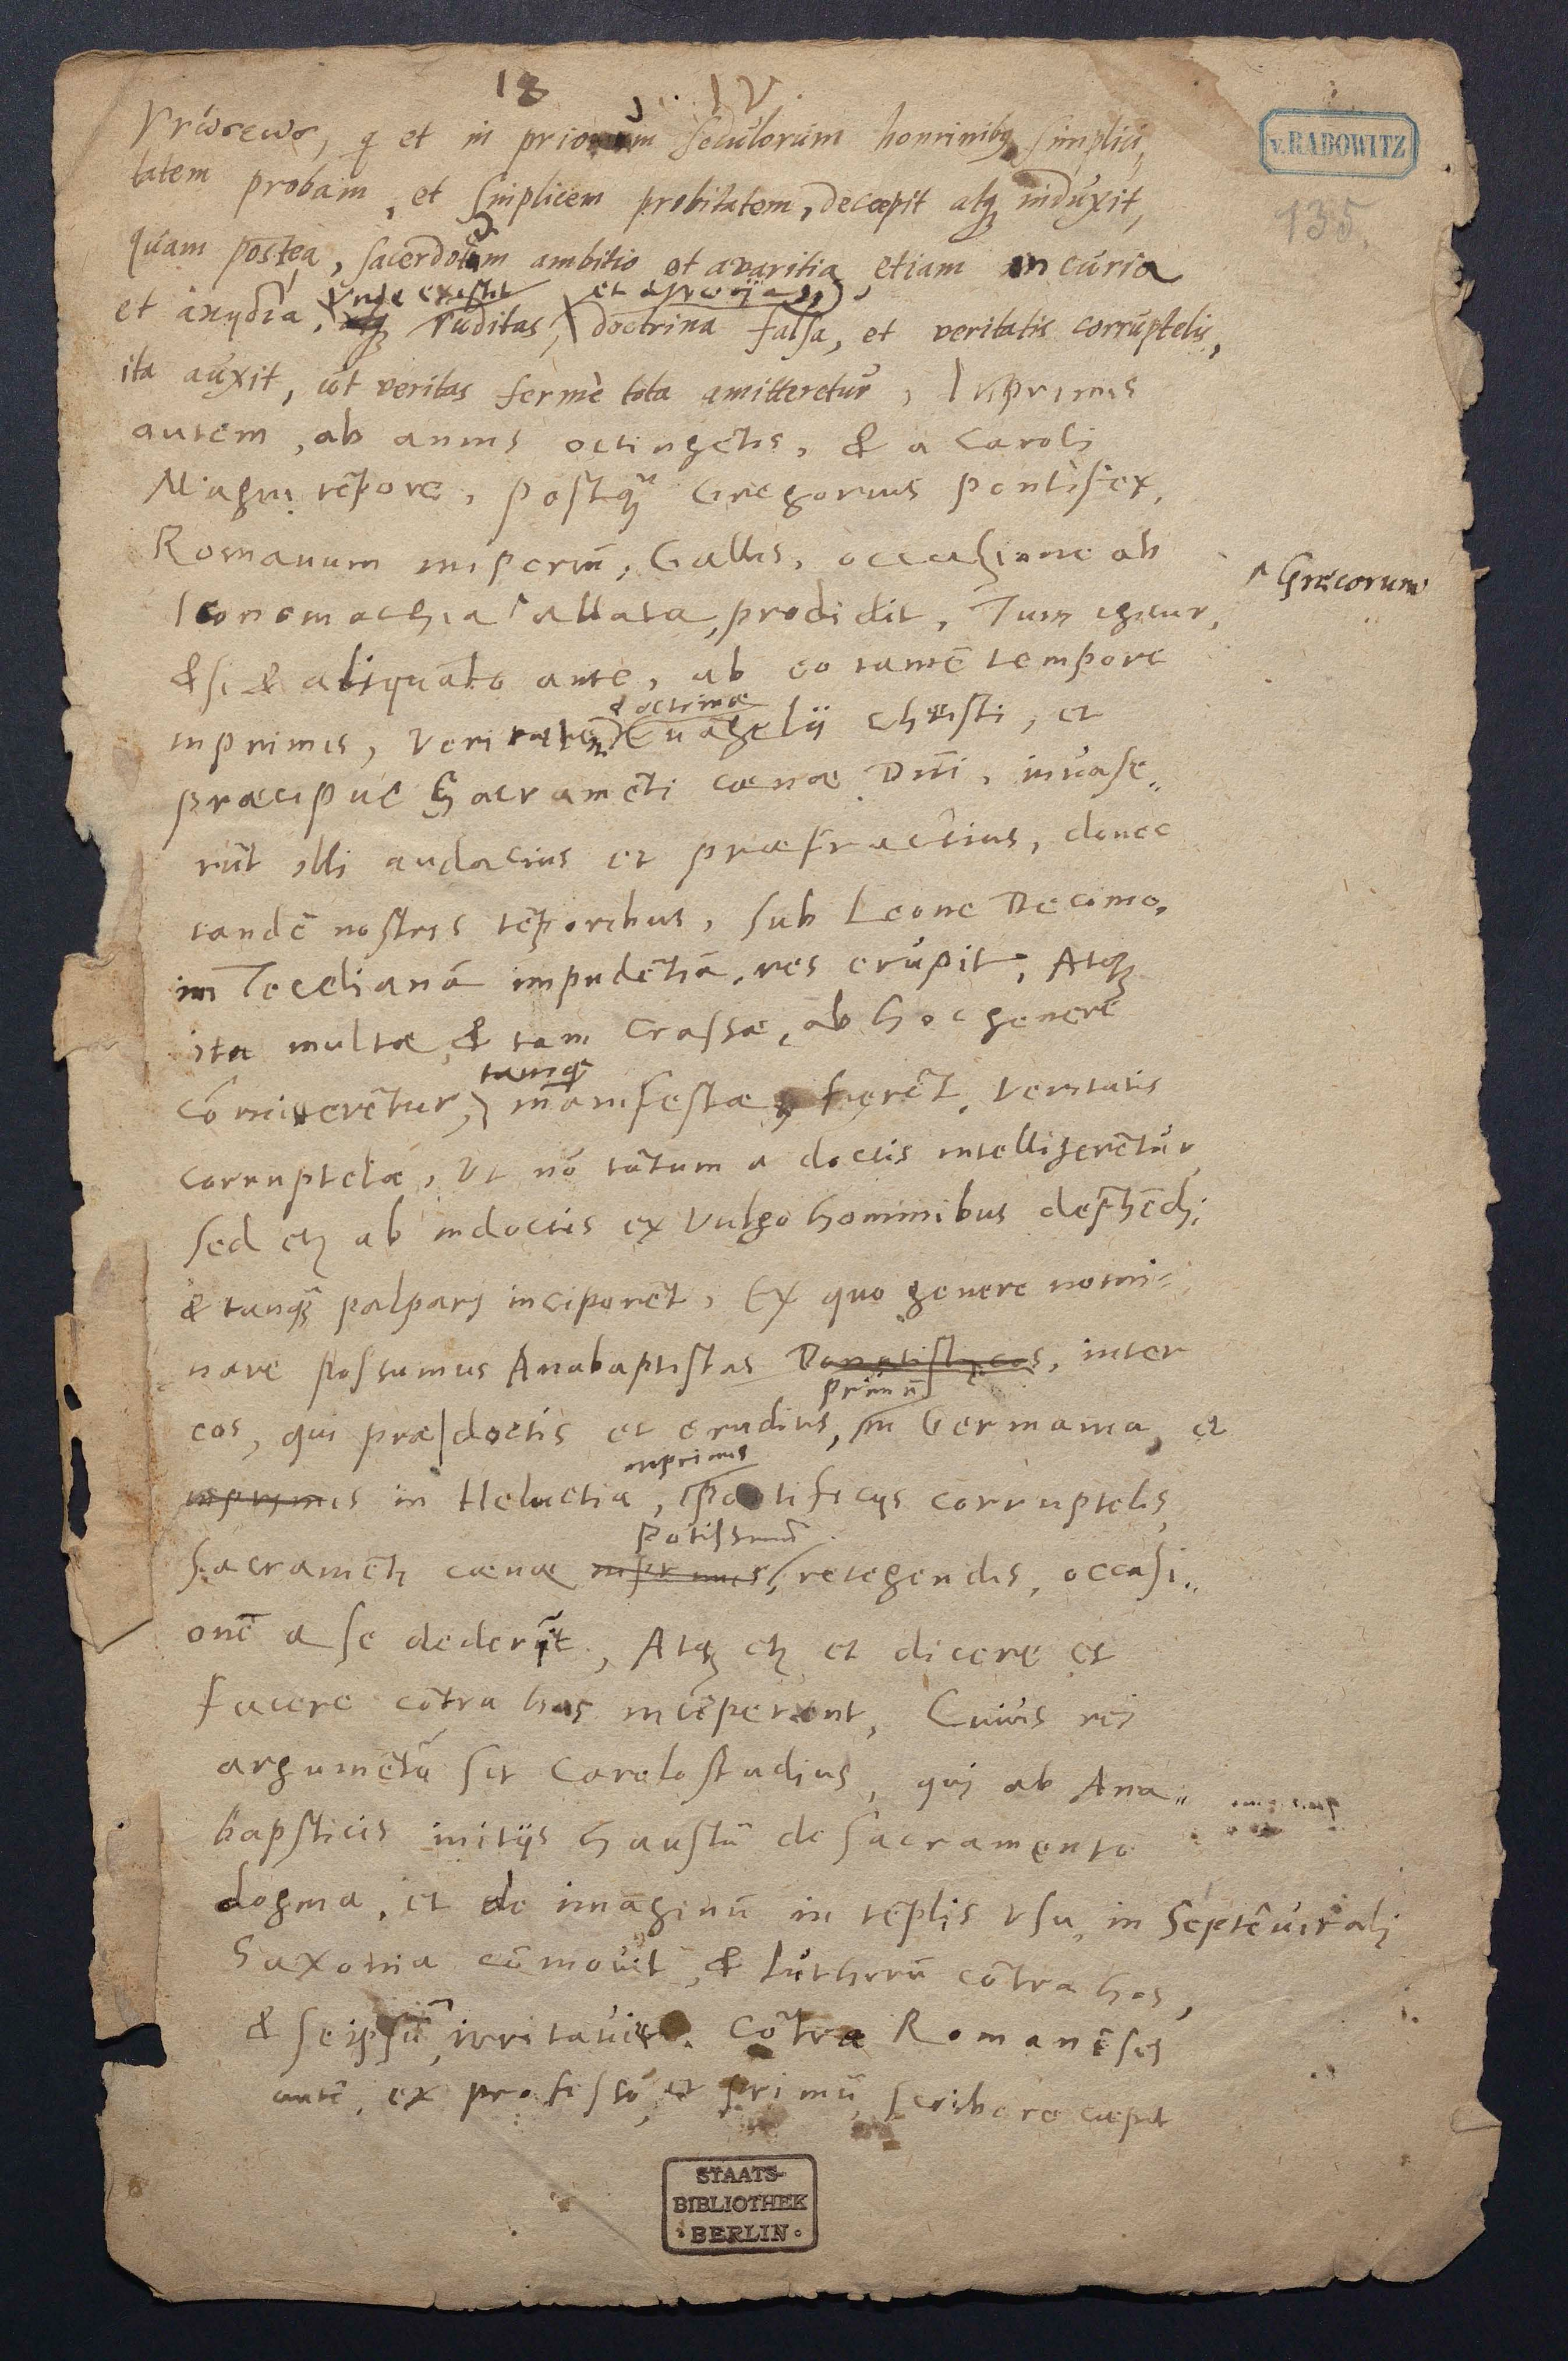 18 IV
v. RADOWITZ
135.
γνώσεως, q et in priorum seculorum hominibq simplici,
tatem probam, et simplicem probitatem, decæpit atq induxit,
quam postea, sacerdotum ambitio et avaritia, etiam incuria
unde existit
et ruditas, doctrina falsa, et veritatis corruptelis,
ita auxit, ut veritas fermè tota amitteretur, Inprimis
autem, ab annis octingẽtis, & a Caroli
Magni tẽpore, postq̃ Gregorius pontifex,
Romanum imperiũ, Gallis, occasione ab
Græcorum
Iconomachia allata, prodidit, Tum igitur,
& si & aliquãto ante, ab eo tamẽ tempore
doctrinæ
inprimis, veritatẽ Euãgelij Christi, et
præcipuè Sacramẽti cœnæ Dñi, invase„
rũt illi audacius et præfractius, donec
tandẽ nostris tẽporibus, sub Leone Decimo,
in Tecelianã impudẽtiã, res erupit, Atq
ita multæ & tam crassæ, ab hoc genere
tamq
cõmitterẽtur, manifestæ fierẽt, veritatis
corruptelæ, Ut nõ tãtum a doctis intelligerẽtur,
sed etz ab indoctis ex vulgo hominibus dephẽdi,
& tanq̃ palpari inciperẽt, Ex quo genere nomi=
nare possumus Anabaptistas Donatisticos, inter
primũ
eos, qui præ doctis et eruditis, in Germania, et
inprimis
inprimis in Helvetia, põtificijs corruptelis,
potissimũ
Sacramẽti cœnæ inprimis, retegendis, occasi„
onẽ a se dederũt, Atq etz et dicere et
facere cõtra has incẽperunt, Cuius rei
argumẽtũ sit Carolostadius, qui ab Ana„
bapsticis initijs haustũ de sacramento
dogma, et de imaginũ in tẽplis usu, in Septẽvirali
Saxonia cõmovit, & Lutherũ cõtra hos,
& seipsũ, irritavit. Cõtra Romanẽses
autẽ, ex professo, et primũ, scribere cæpit
STAATS-
BIBLIOTHEK
BERLIN